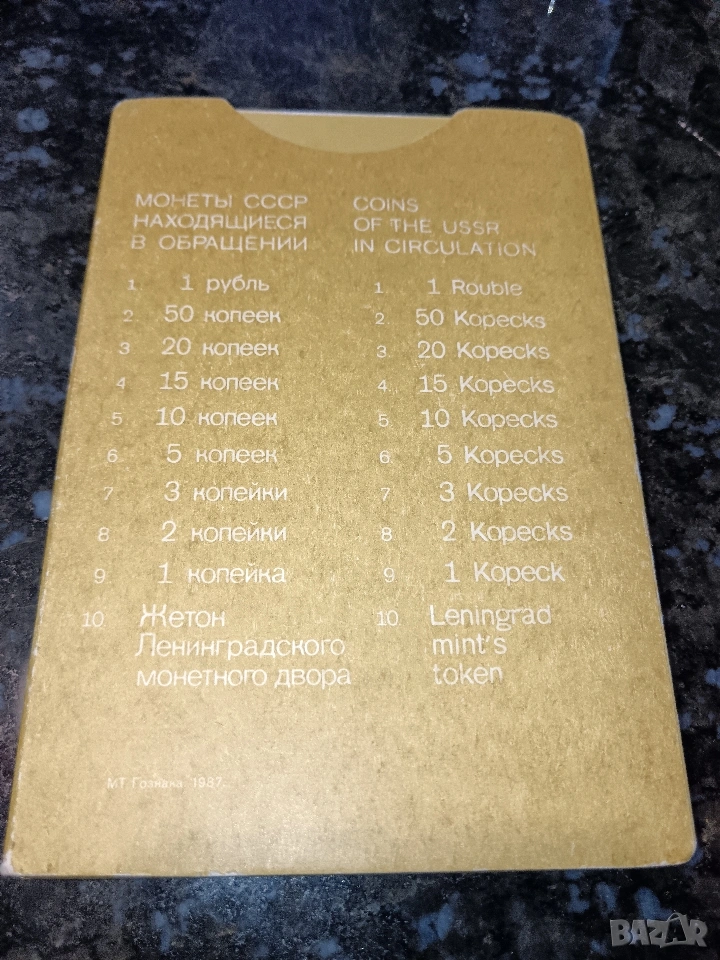 МОНЕТЫ СССР
НАХОДЯЩИЕСЯ
В ОБРАЩЕНИИ
1. 1 рубль
2. 50 копеек
3 20 копеек
4 15 копеек
5 10 копеек
6. 5 копеек
7 3 копейки
8 2 копейки
9 1 копейка
10. Жетон
Ленинградского
монетного двора
COINS
OF THE USSR
IN CIRCULATION
1. 1 Rouble
2. 50 Kopecks
3. 20 Kopecks
4. 15 Kopecks
5. 10 Kopecks
6. 5 Kopecks
7 3 Kopecks
8 2 Kopecks
9 1 Kopeck
10. Leningrad
mint's
token
МТ Гознака 1987
BAZAR